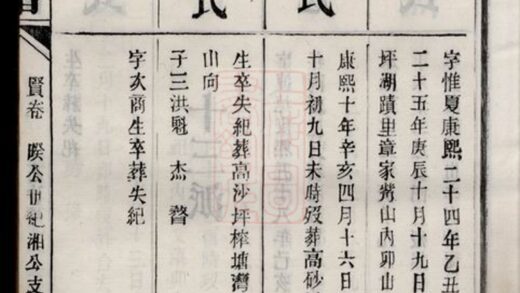 氏
氏
字惟夏康熙二十四年乙丑
二十五年庚辰十月十九日
坪湖蹟里章家嶺山内卯山
康熙十年辛亥四月十六日
十月初九日未時歿葬高砂
生卒失紀葬高沙坪榨塘灣
山向
子三洪魁 杰 瞀
字次商生卒葬失紀
賢卷 暌公世紀湘公支